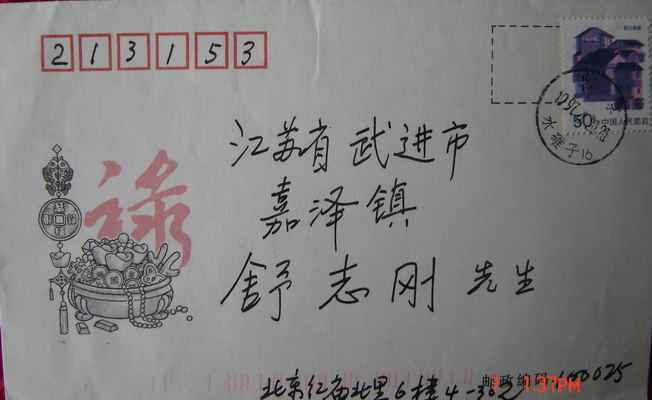 213153
50分 中国人民邮政
水碓子16
江苏省武进市
嘉泽镇
舒志刚 先生
禄
北京红庙北里6楼4-302
邮政编码 100025
1:37PM